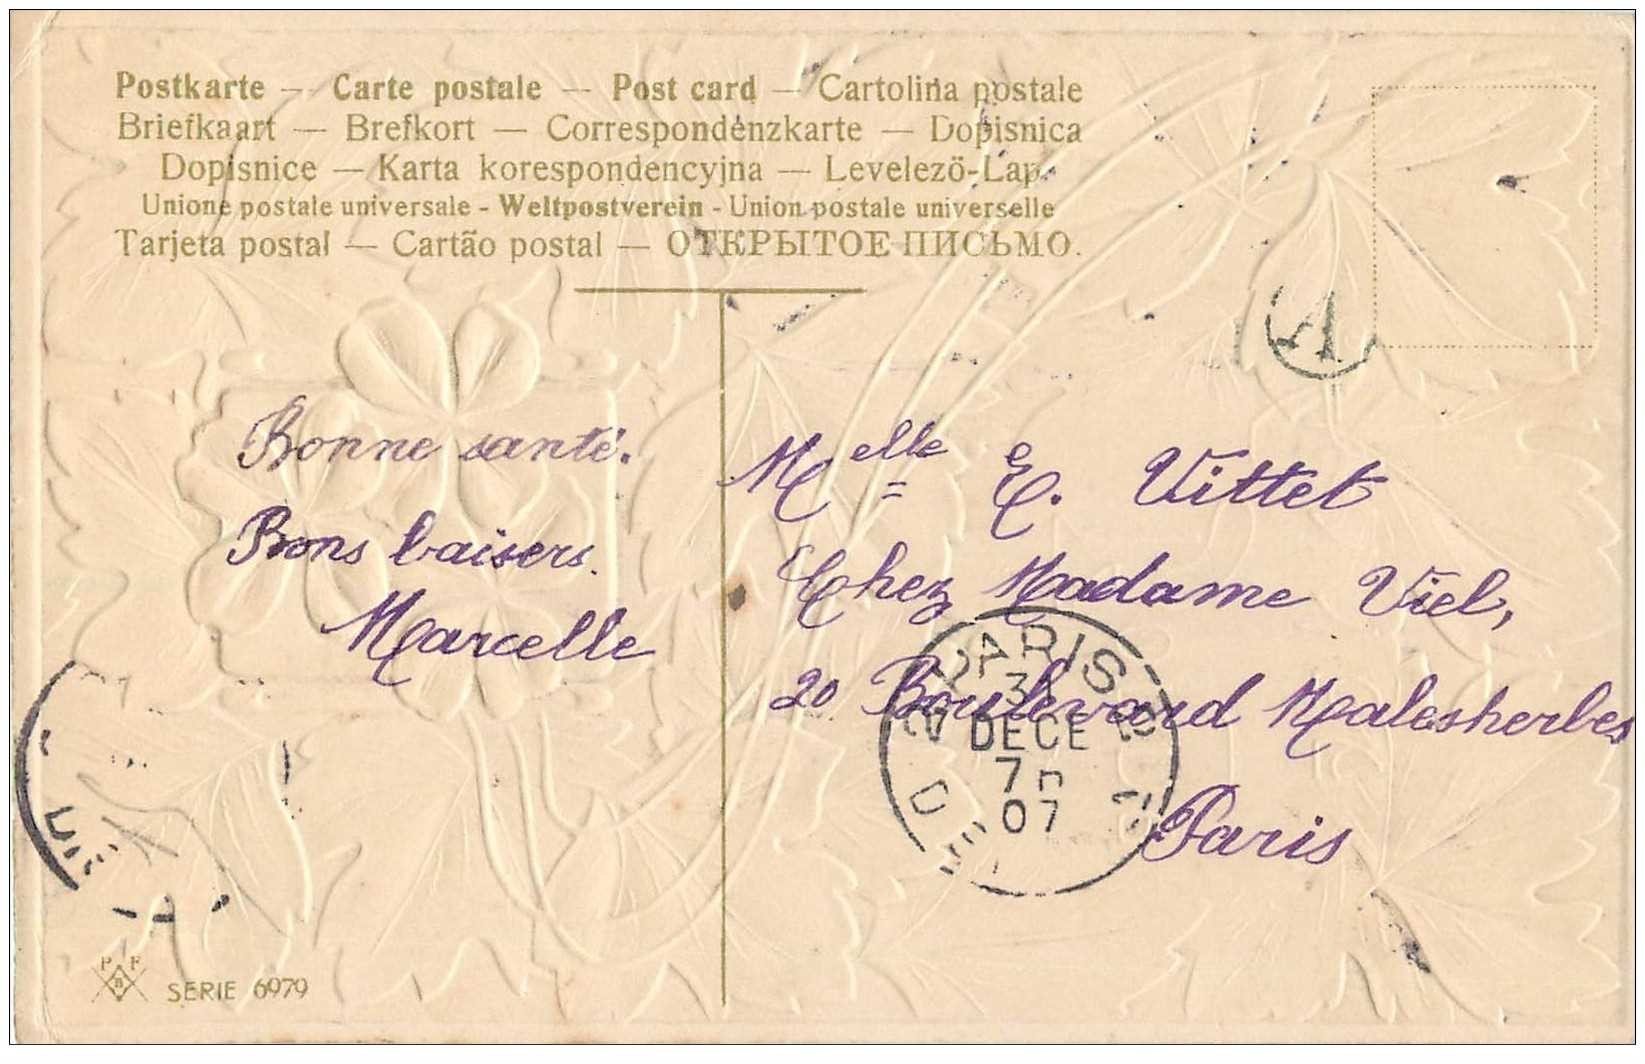 Postkarte — Carte postale — Post card — Cartolina postale
Briefkaart — Brefkort — Correspondenzkarte — Dopisnica
Dopisnice — Karta korespondencyjna — Levelező-Lap.
Unione postale universale - Weltpostverein - Union postale universelle
Tarjeta postal — Cartão postal — ОТКРЫТОЕ ПИСЬМО.
T
Bonne santé.
Bons baisers.
Marcelle
Melle E. Vittet
Chez Madame Viel,
20 Boulevard Malesherbes
Paris
PARIS
DECE
07
P F
B
SERIE 6979